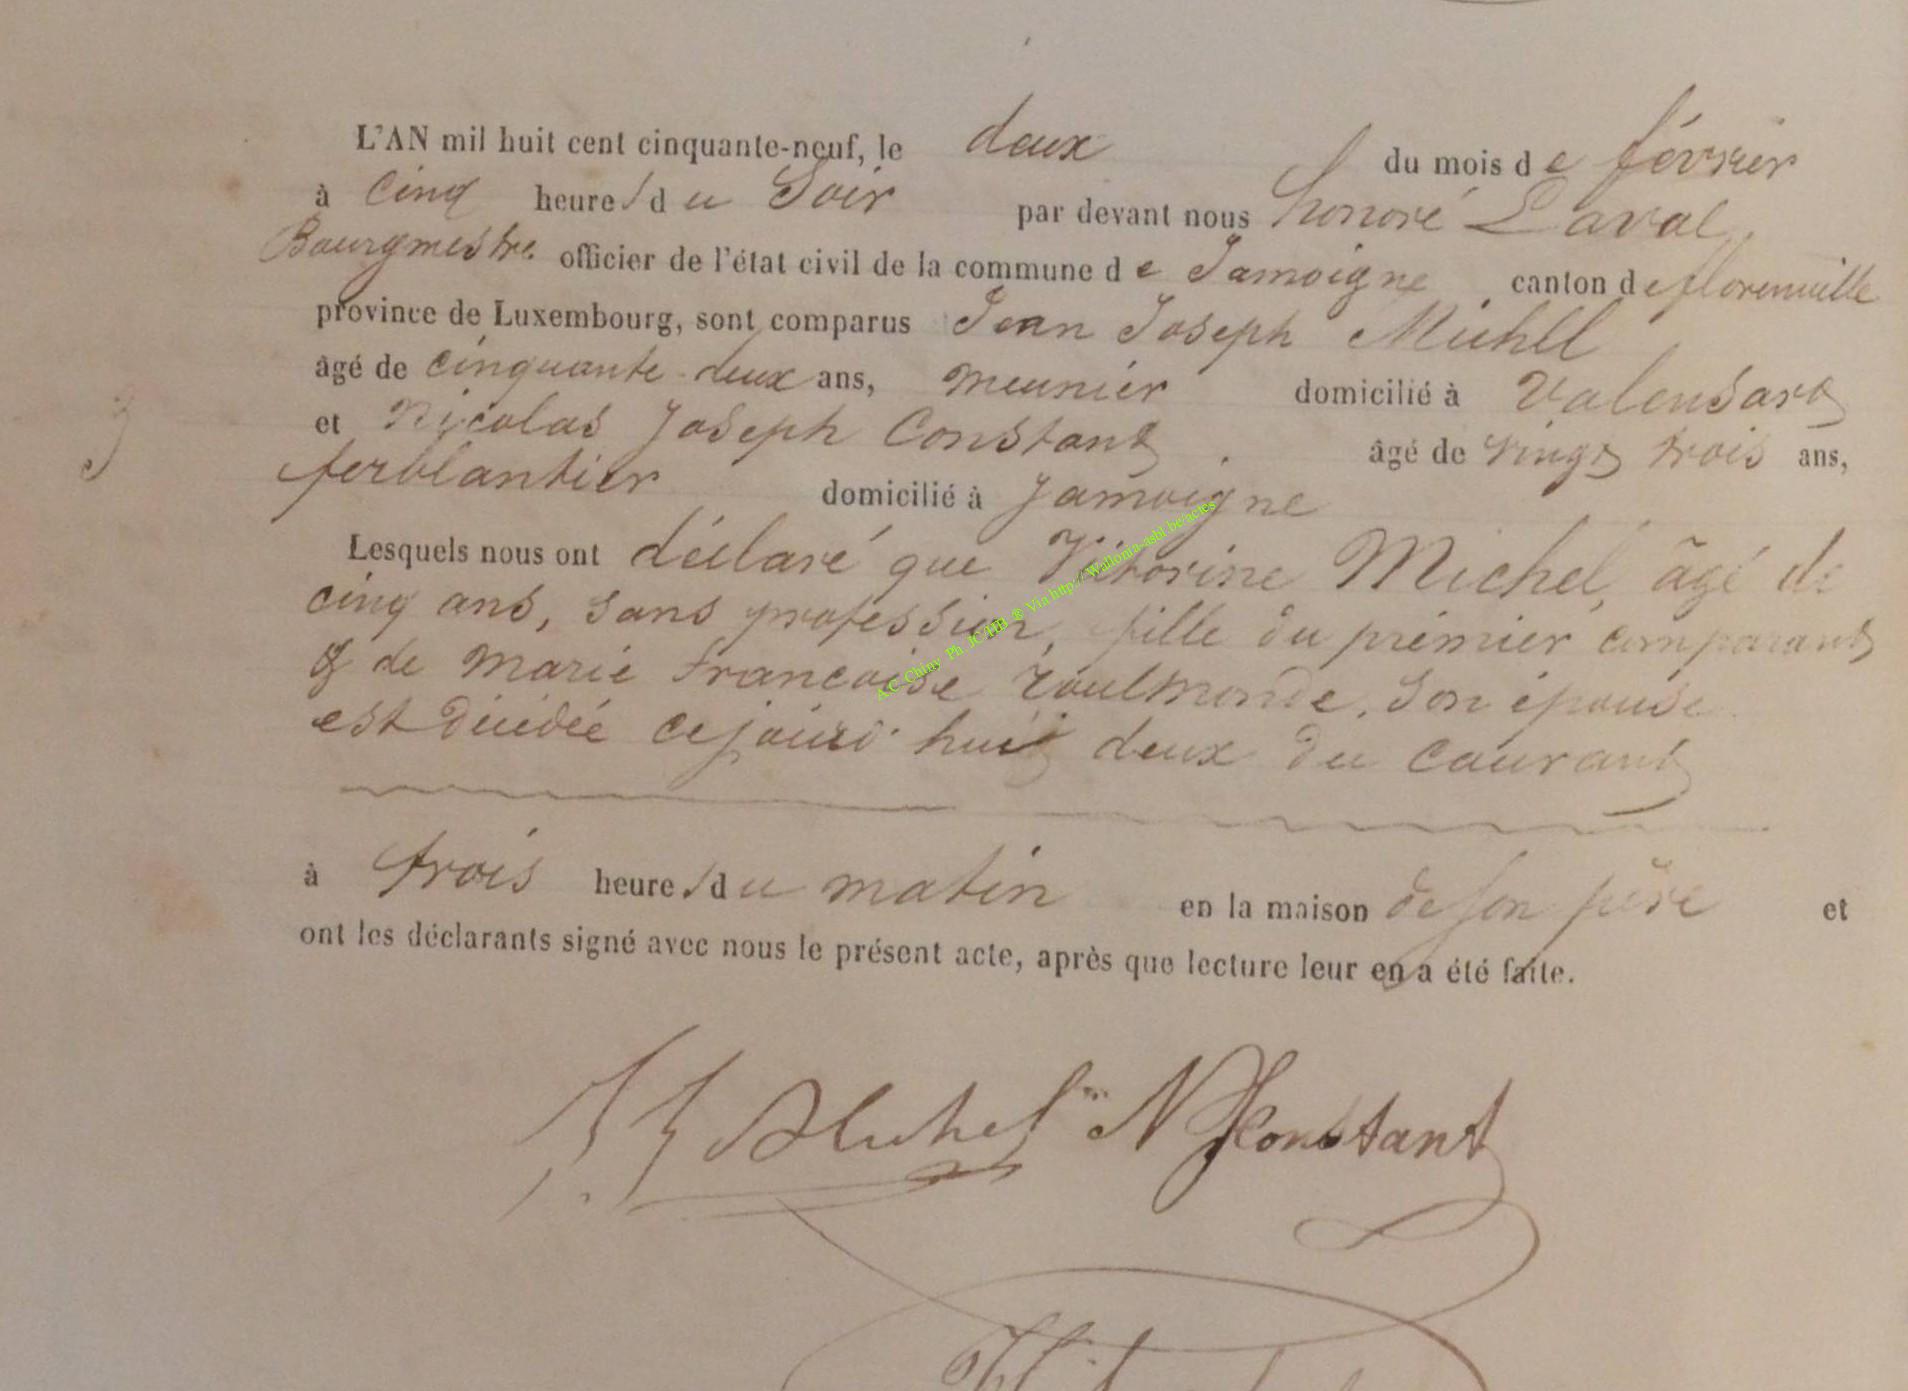 L'AN mil huit cent cinquante-neuf, le deux du mois de février
à Cinq heures du Soir par devant nous honoré Laval
Bourgmestre officier de l'état civil de la commune de Jamoigne canton de florenville
province de Luxembourg, sont comparus Jean Joseph Michel
âgé de cinquante-deux ans, meunier domicilié à Valensart
et Nicolas Joseph Constant âgé de vingt trois ans,
3
ferblantier domicilié à Jamoigne
Lesquels nous ont déclaré que Victorine Michel, âgé de
cinq ans, sans profession, fille du prémier comparant
& de marie francoise toulmonde, son épouse
est décédée cejourd'hui deux du courant
à trois heures du matin en la maison de son père et
ont les déclarants signé avec nous le présent acte, après que lecture leur en a été faite.
JJ Michel N J Constant
A.C Chiny Ph JC/HB ® Via http://Wallonia-asbl.be/actes